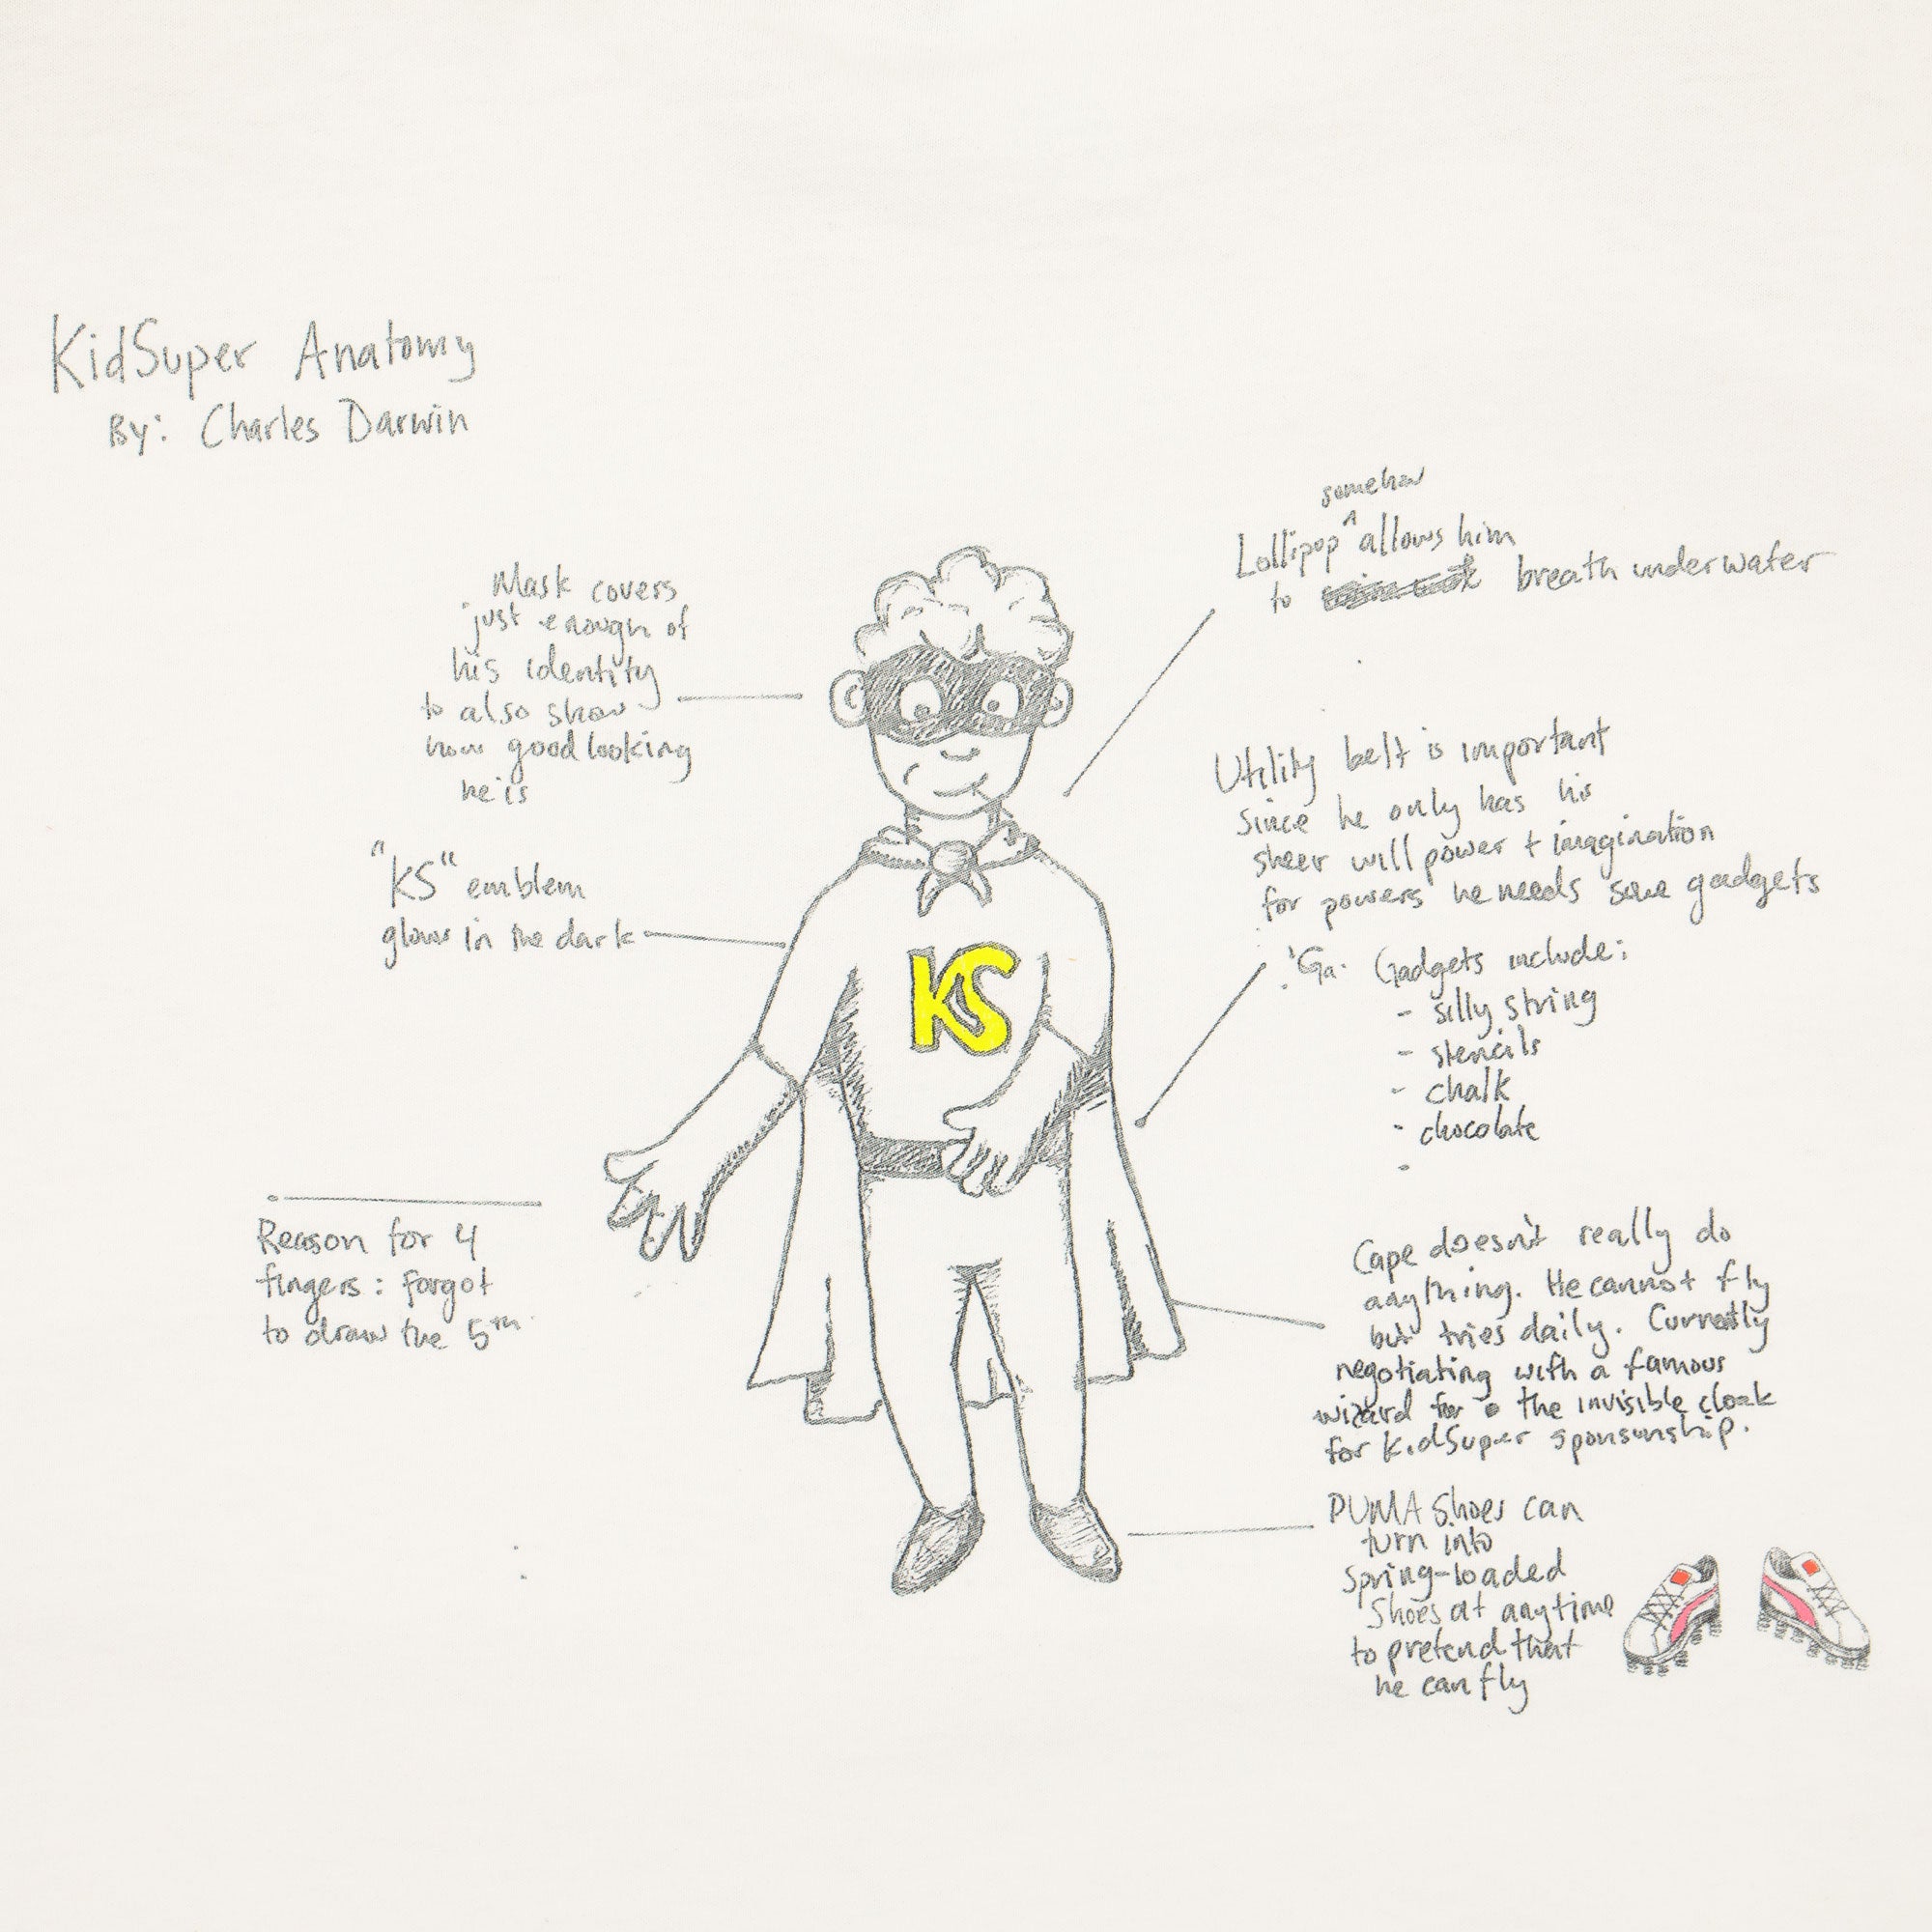 KidSuper Anatomy
By: Charles Darwin
somehow
Lollipop ^ allows him
to breath underwater
Mask covers
just enough of
his identity
to also show
how good looking
he is
"KS" emblem
glows in the dark
Utility belt is important
since he only has his
sheer will power + imagination
for powers he needs some gadgets
'Ga. Gadgets include:
- silly string
- stencils
- chalk
- chocolate
-
KS
Reason for 4
fingers: forgot
to draw the 5th.
Cape doesn't really do
anything. He cannot fly
but tries daily. Currently
negotiating with a famous
wizard for the invisible cloak
for KidSuper sponsorship.
PUMA Shoes can
turn into
Spring-loaded
Shoes at anytime
to pretend that
he can fly